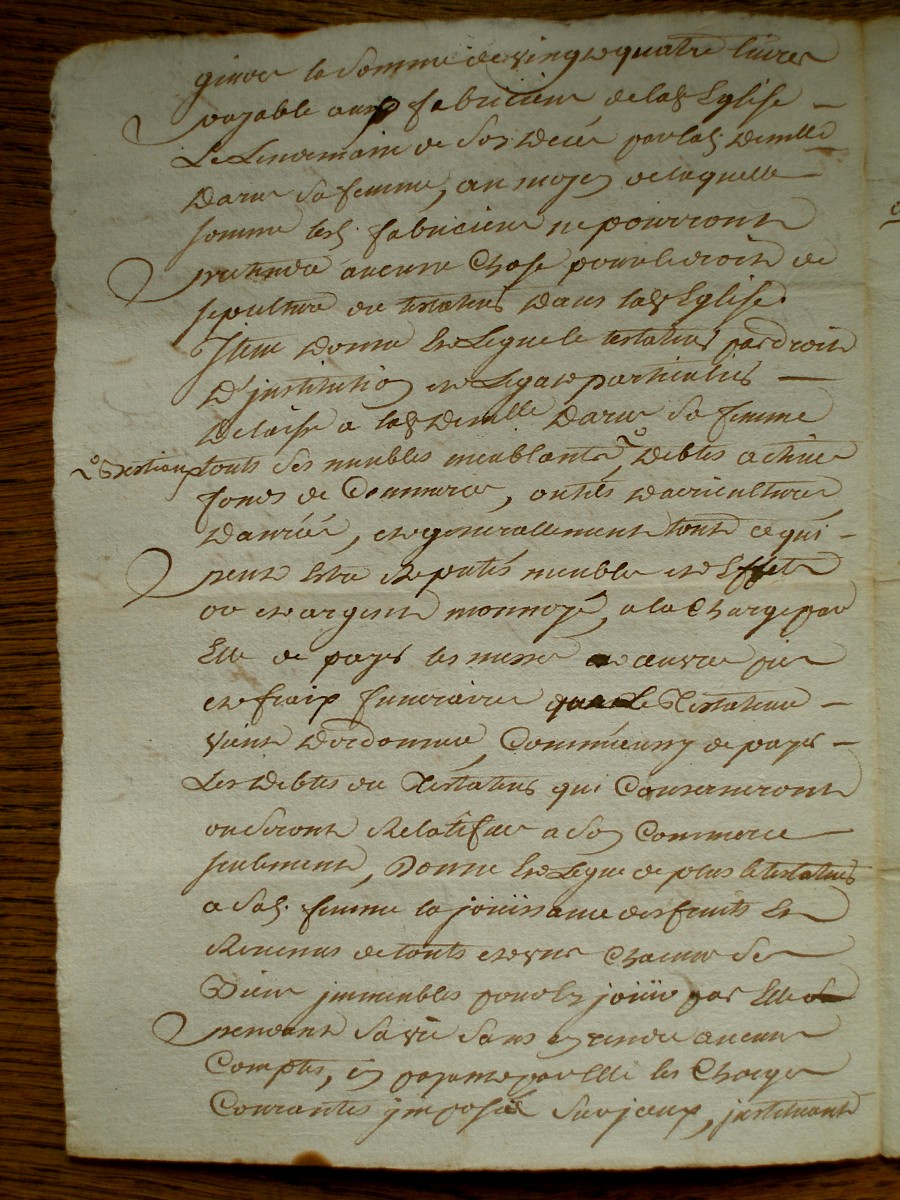 la somme de vingt quatre livres
payable aux fabriciens de lad Eglise
Le Lendemain de son decés par lad demlle
Darus sa femme, au moyen de laquelle
somme lesd fabriciens ne pourront
pretendre aucune chose pour le droit de
sepulture du testateur dans lad Eglise.
Item donne et Legue le testateur par droit
D'institution et Legat particulier
Delaisse a lad demlle Darus sa femme
touts ses meubles meublants, debtes actives
fonds de Commerce, outils d'agriculture
Danrées, et generallement tout ce qui
peut estre reputés meubles et Effets
or et argent monnoyé, a la Charge par
Elle de payer les messes et œuvres pies
et fraix funeraires que le Testateur
vient d'ordonner, Comme aussy de payer
Les debtes du Testateur qui Conserneront
ou seront Relatifves a son Commerce
seulement, Donne et Legue de plus le testateur
a sad. femme la joüissance des fruits et
Revenus de touts et un chacuns ses
Biens immeubles pour en joüir par Elle
pendant sa vie sans en rendre aucun
Compte, en payant par Elle les Charges
Courantes imposées sur iceux, instituant